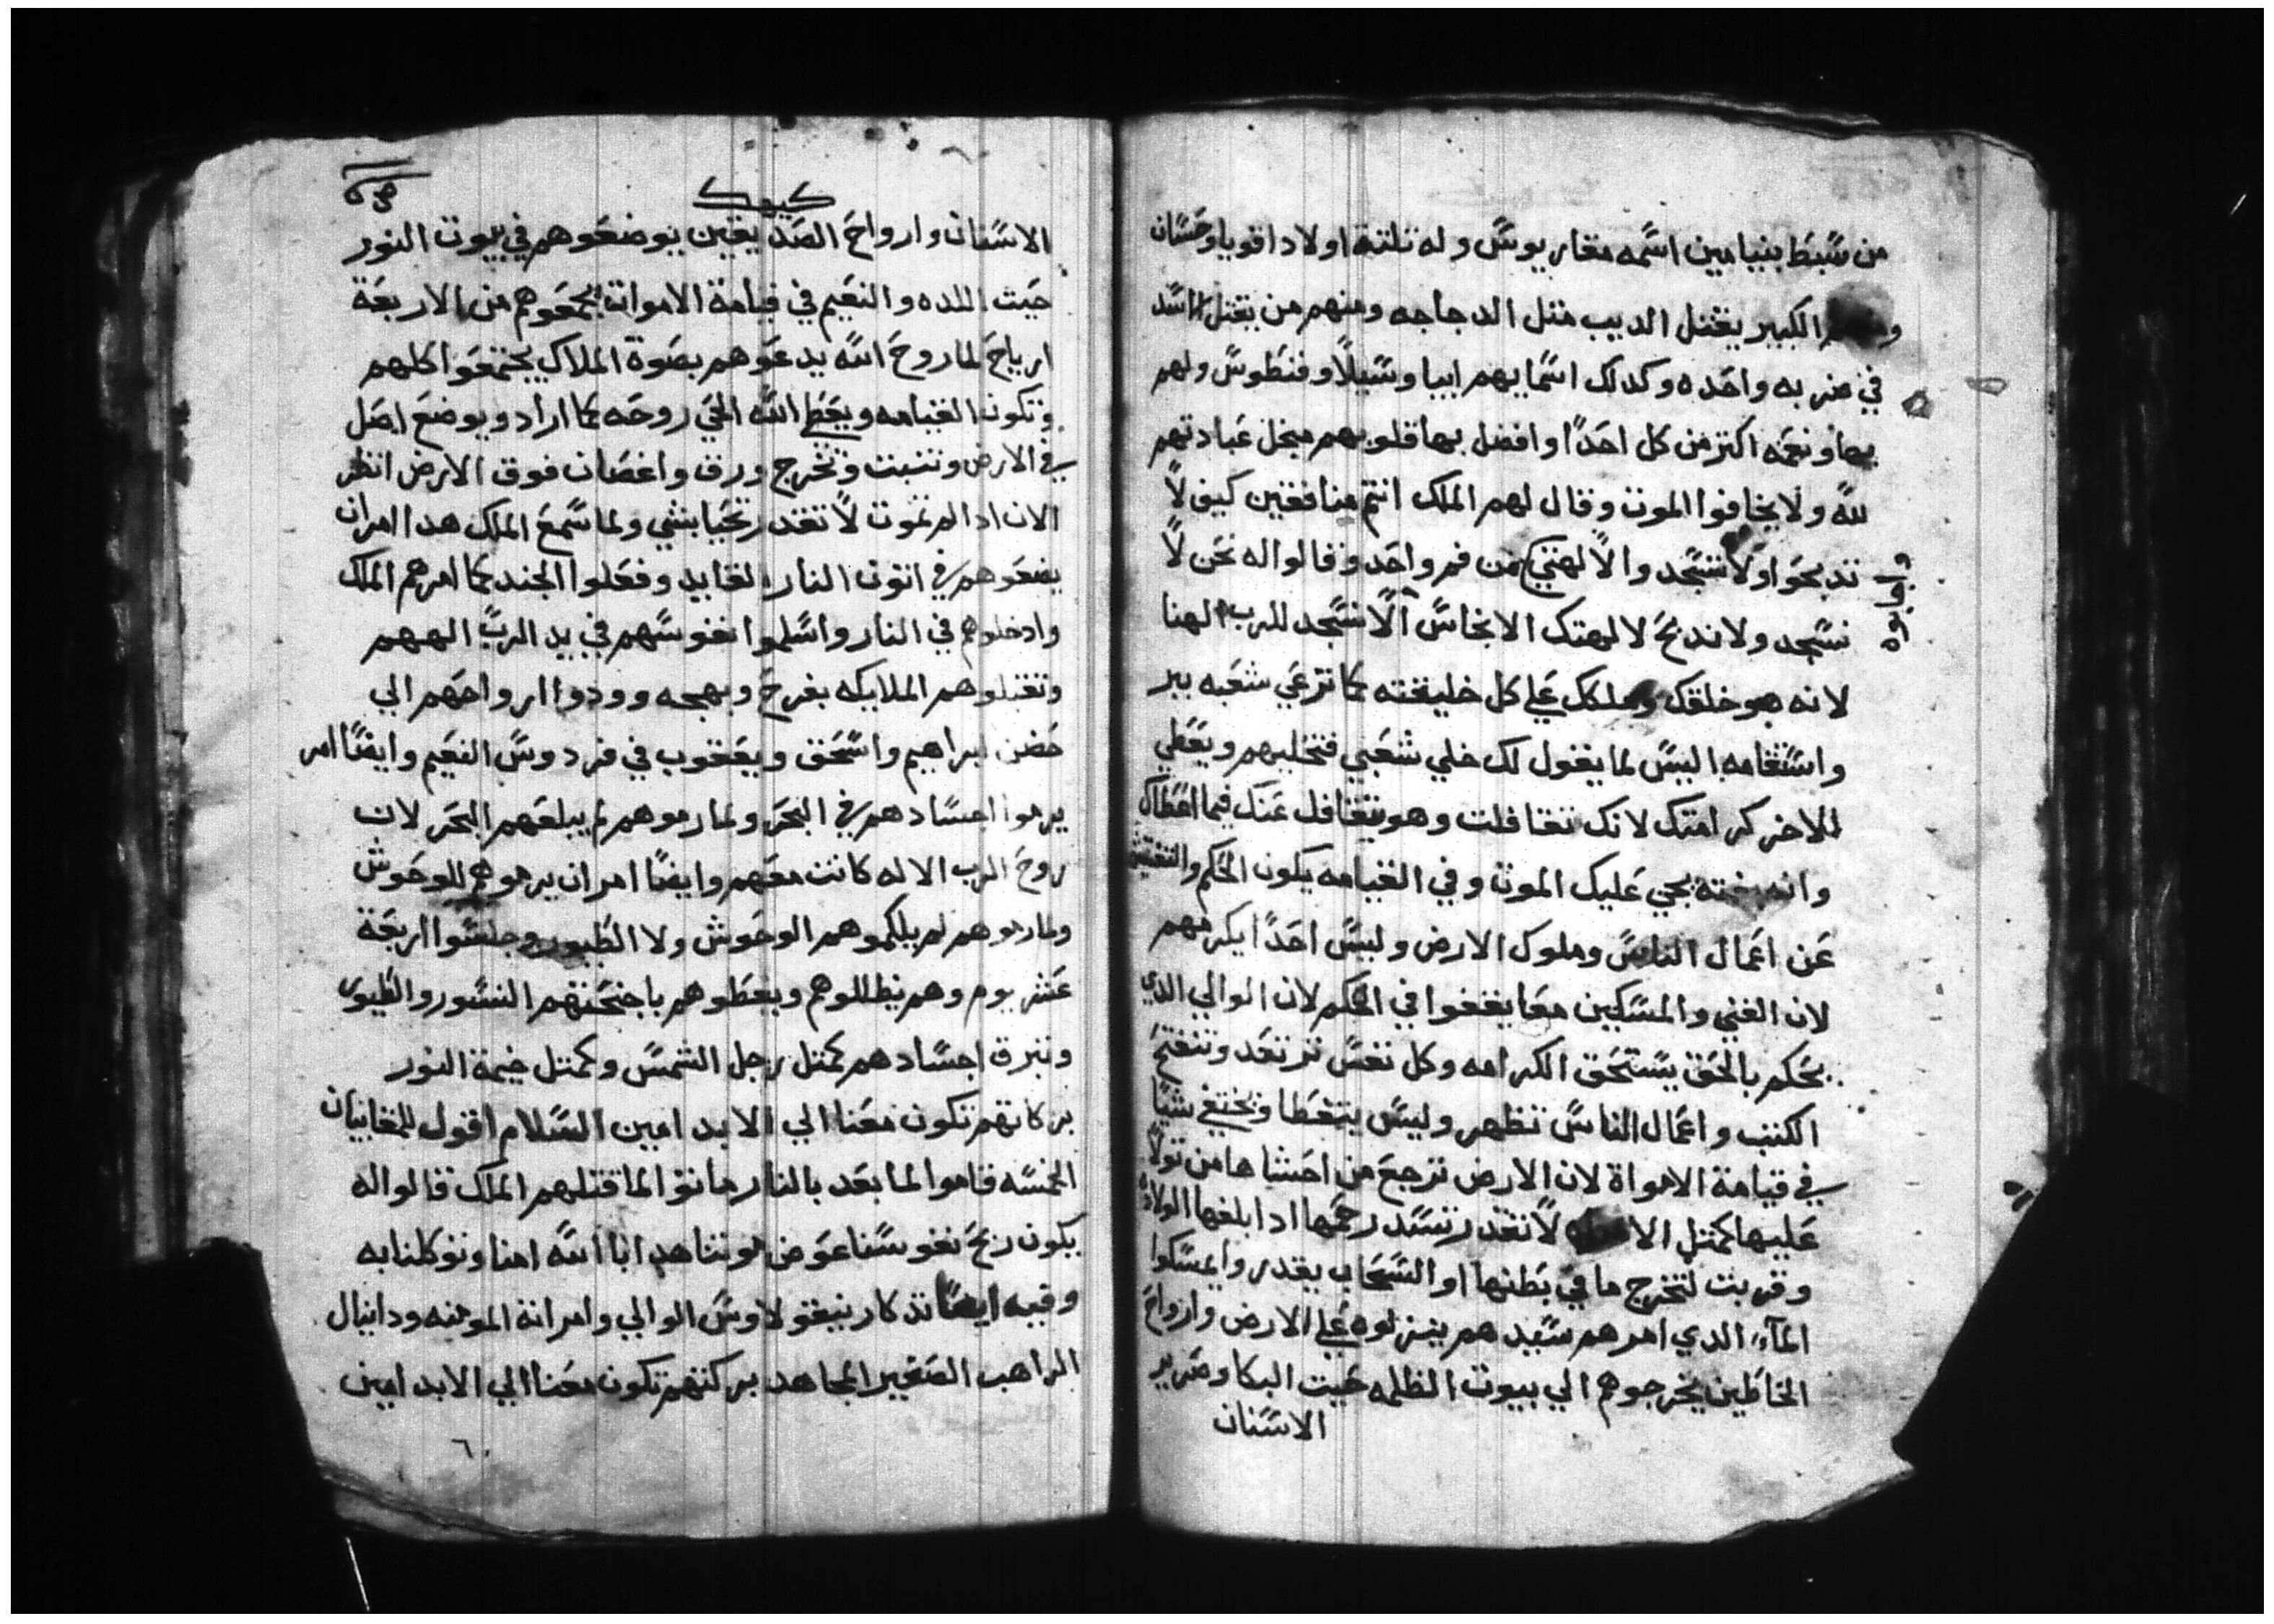 من سبط بنيامين اسمه مقاريوس وله تلتة اولاد اقويا وحسان
الكبير يقتل الديب متل الدجاجه ومنهم من يقتل الاسد
في ضربه واحده وكدلك اسمايهم ابيا وسيلا وفنطوس ولهم
بها ونعمه اكتر من كل احدا وافضل بها قلوبهم مبخل عبادتهم
لله ولا يخافوا الموت وقال لهم الملك انتم منافقين كيف لا
تدبحوا ولا تسجد والالهتي من فم واحد وقالوا له نحن لا
نسجد ولا ندبح لالهتك الانجاس الا نسجد للرب الهنا
لانه هو خلقك وملكك علي كل خليقته كما ترعي شعبه ببر
واستقامه اليس لما يقول لك خلي شعبي فتخليهم ويعطي
للاخر كرامتك لانك تغافلت وهو يتغافل عنك فيما اعطاك
وانه بغته يجي عليك الموت وفي القيامه يكون الحكم والتفتيش
عن اعمال الناس وملوك الارض وليس احدا يكرمهم
لان الغني والمسكين معا يقفوا في الحكم لان الوالي الدي
يحكم بالحق يستحق الكرامه وكل نفس ترتعد وتنفتح
الكتب واعمال الناس تظهر وليس يتغطا ويختفي شيا
في قيامة الامواة لان الارض ترجع من احشاها من تولا
عليها كمتل لا تقدر تسد رحمها ادا بلغها الولاده
وقربت لتخرج ما في بطنها او السحاب يقدر وايمسكوا
المآء الدي امرهم سيدهم ينزلوه علي الارض وارواح
الخاطين يخرجوهم الي بيوت الظلمه حيت البكا وصرير
الاسنان
كيهك
الاسنان وارواح الصديقين يوضعوهم في بيوت النور
حيت اللده والنعيم في قيامة الاموات يجمعوهم من الاربعة
ارياح لما روح الله يدعوهم بصوة الملاك يجتمعوا كلهم
وتكون القيامه ويعط الله الحي روحه كما اراد ويوضع اصل
في الارض وتنبت وتخرج ورق واغصان فوق الارض انظر
الان ادا لم تموت لا تقدر تحيا بشي ولما سمع الملك هدا امر ان
يضعوهم في اتون النار القايد وفعلوا الجند كما امرهم الملك
وادخلوهم في النار واسلموا نفوسهم في يد الرب الههم
وتقبلوهم الملايكه بفرح وبهجه وودوا ارواحهم الي
حضن ابراهيم واسحق ويعقوب في فردوس النعيم وايضا امر
يرموا اجسادهم في البحر ولما رموهم لم يبلعهم البحر لان
روح الرب الاله كانت معهم وايضا امر ان يرموهم للوحوش
ولما رموهم لم يلكموهم الوحوش ولا الطيور وجلسوا اربعة
عشر يوم وهم يظللوهم ويغطوهم باجنحتهم النسور والطيور
وتبرق اجسادهم كمتل رجل الشمس وكمتل خيمة النور
بركاتهم تكون معنا الي الابد امين السلام اقول للمغانيان
الخمسه قاموا لما بعد بالنار ماتوا لما قتلهم الملك قالوا له
يكون ربح نفوسنا عوض موتنا هدا انا الله امنا وتوكلنا به
وفيه ايضا تدكار نيقولاوس الوالي وامراته المومنه ودانيال
الراهب الصغير المجاهد بركتهم تكون معنا الي الابد امين
٦٠